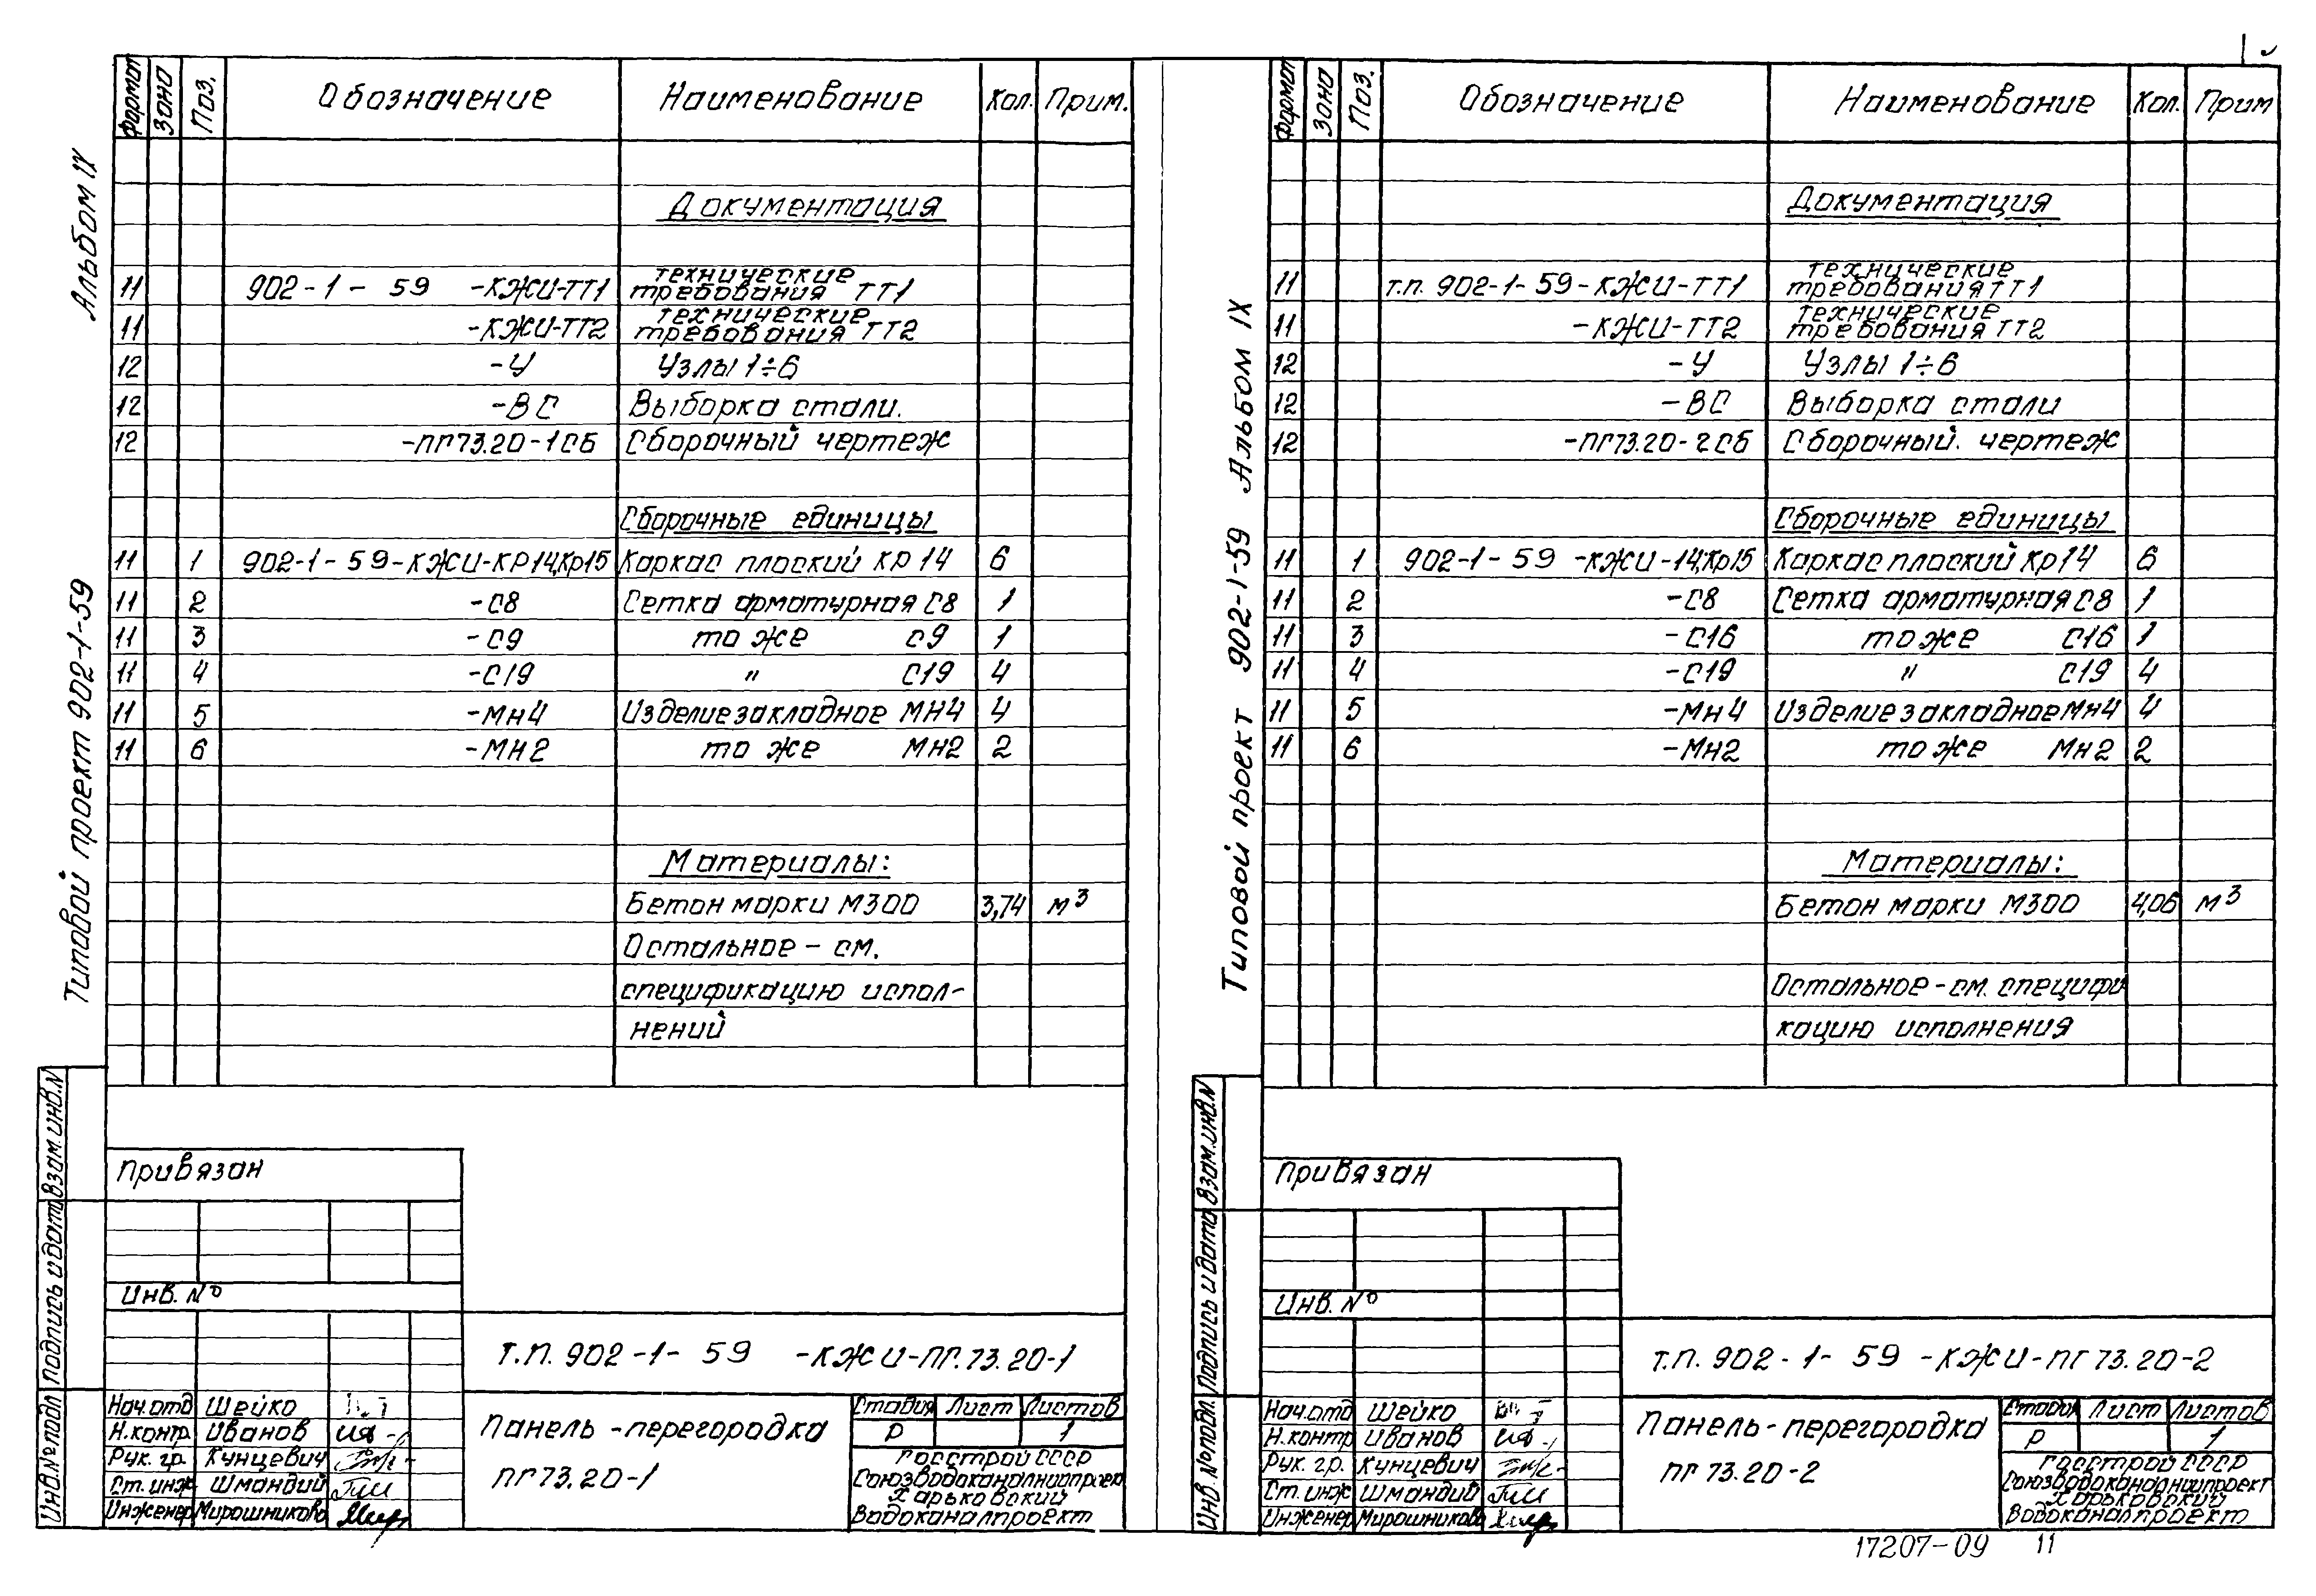 Альбом IX
Типовой проект 902-1-59
Формат Зона Поз. Обозначение Наименование Кол. Прим.
Документация
11 902-1-59 -КЖИ-ТТ1 технические требования ТТ1
11 -КЖИ-ТТ2 технические требования ТТ2
12 -У Узлы 1÷6
12 -ВС Выборка стали.
12 -ПГ73.20-1СБ Сборочный чертеж
Сборочные единицы
11 1 902-1-59-КЖИ-КР14,Кр15 Каркас плоский КР14 6
11 2 -С8 Сетка арматурная С8 1
11 3 -С9 то же С9 1
11 4 -С19 " С19 4
11 5 -МН4 Изделие закладное МН4 4
11 6 -МН2 то же МН2 2
Материалы:
Бетон марки М300 3,74 м3
Остальное - см.
спецификацию испол-
нений
Взам. инв.N
Подпись и дата
Инв.№ подл
Привязан
Инв. №
Т.П. 902-1- 59 -КЖИ-ПГ.73.20-1
Нач.отд Шейко
Н.контр Иванов
Рук. гр. Кунцевич
Ст.инж Шмандий
Инженер Мирошникова
Панель-перегородка
ПГ73.20-1
Стадия Лист Листов
Р 1
Госстрой СССР
Союзводоканалниипроект
Харьковский
Водоканалпроект
Типовой проект 902-1-59 Альбом IX
Формат Зона Поз. Обозначение Наименование Кол. Прим
Документация
11 т.п. 902-1-59-КЖИ-ТТ1 технические требования ТТ1
11 -КЖИ-ТТ2 технические требования ТТ2
12 -У Узлы 1÷6
12 -ВС Выборка стали
12 -ПГ73.20-2СБ Сборочный. чертеж
Сборочные единицы
11 1 902-1-59 -КЖИ-14,Кр15 Каркас плоский Кр14 6
11 2 -С8 Сетка арматурная С8 1
11 3 -С16 то же С16 1
11 4 -С19 " С19 4
11 5 -МН4 Изделие закладное МН4 4
11 6 -МН2 то же МН2 2
Материалы:
Бетон марки М300 4,06 м3
Остальное-см. специфи
кацию исполнения
Взам.инв.N
Подпись и дата
Инв.№ подл.
Привязан
Инв. №
Т.П. 902-1- 59 -КЖИ-ПГ73.20-2
Нач.отд Шейко
Н.контр Иванов
Рук. гр. Кунцевич
Ст. инж Шмандий
Инженер Мирошникова
Панель-перегородка
ПГ73.20-2
Стадия Лист Листов
Р 1
Госстрой СССР
Союзводоканалниипроект
Харьковский
Водоканалпроект
17207-09 11